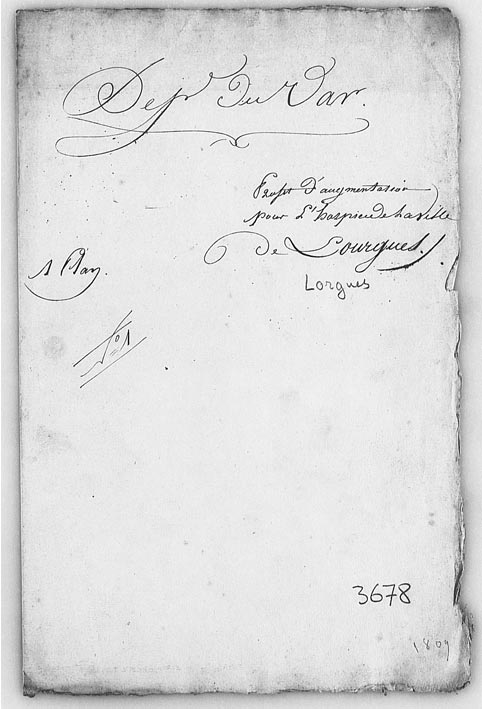 Dept. Du Var.
Projet D'augmentation
pour L'hospice de la Ville
De Lourgues.
Lorgues
1 Plan.
N° 1
3678
1809